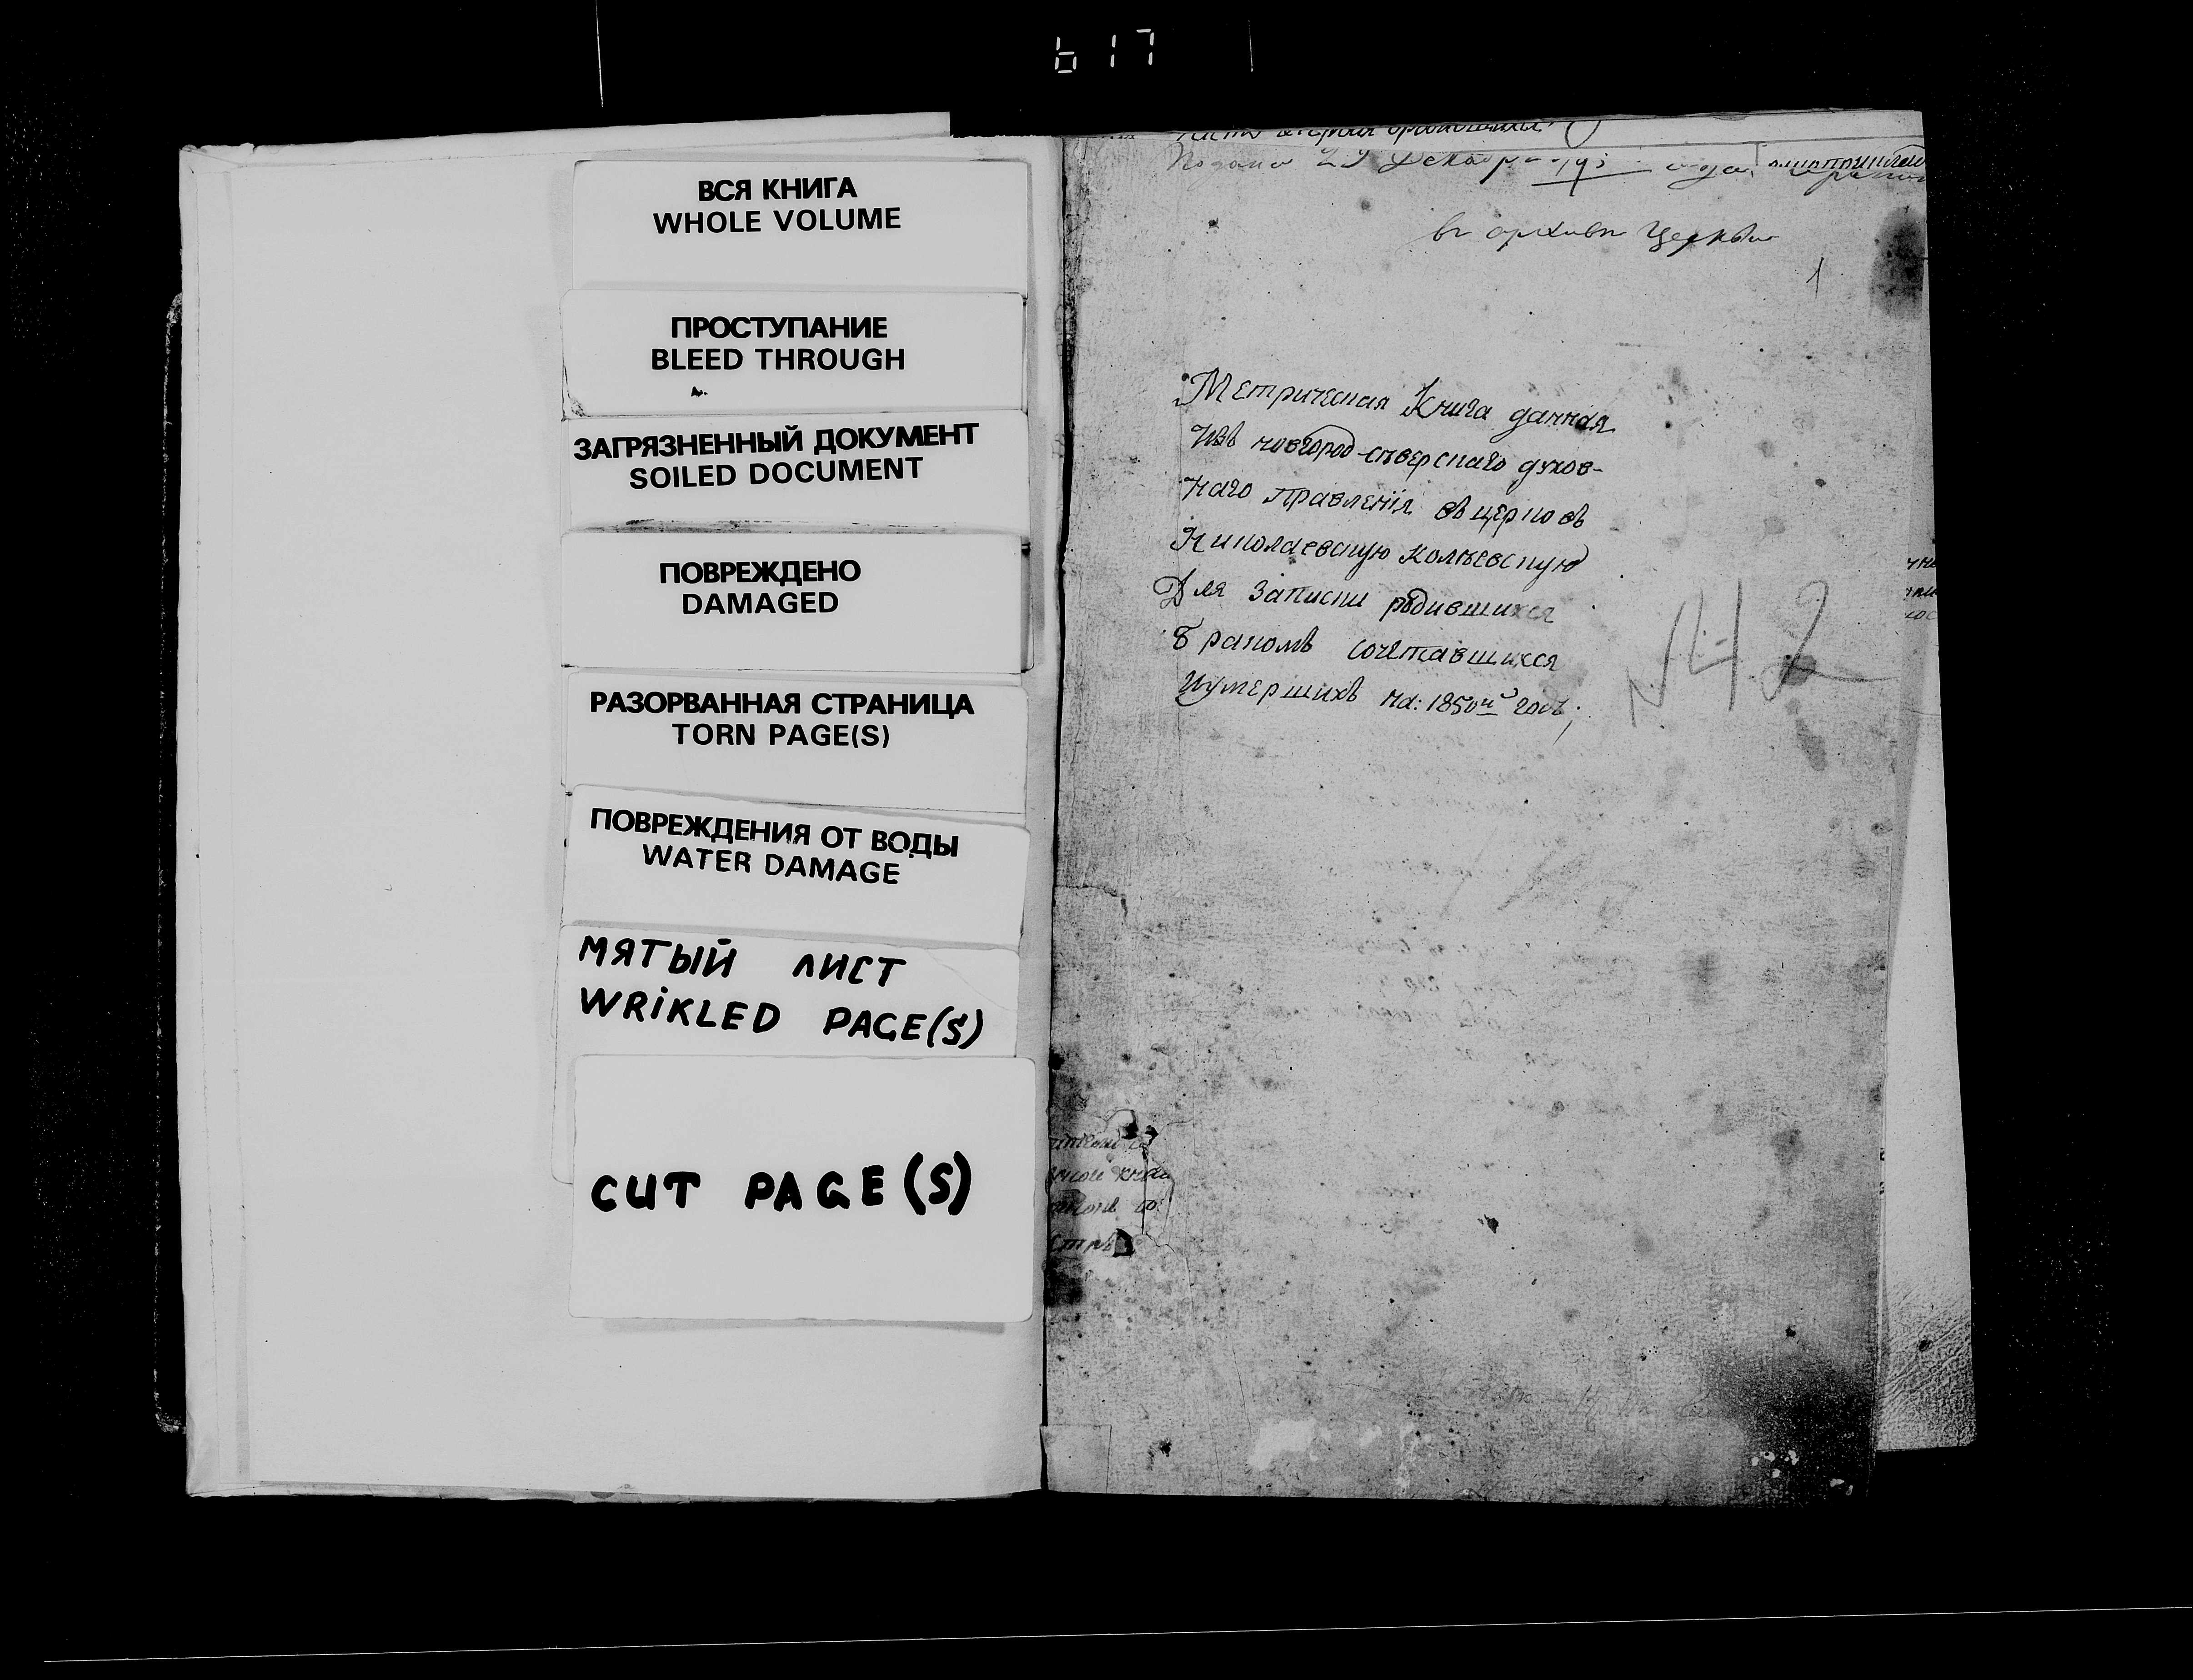 617
ВСЯ КНИГА
WHOLE VOLUME
ПРОСТУПАНИЕ
BLEED THROUGH
ЗАГРЯЗНЕННЫЙ ДОКУМЕНТ
SOILED DOCUMENT
ПОВРЕЖДЕНО
DAMAGED
РАЗОРВАННАЯ СТРАНИЦА
TORN PAGE(S)
ПОВРЕЖДЕНИЯ ОТ ВОДЫ
WATER DAMAGE
МЯТЫЙ ЛИСТ
WRIKLED PAGE(S)
CUT PAGE(S)
Подано 29 Декабря
въ архивъ Церкви
1
Метрическая Книга данная
Изъ новгород-сѣверскаго духов-
наго правленія въ церковь
Николаевскую
Для записки родившихся
бракомъ сочетавшихся
Иумершихъ на: 1850й годъ;
№2